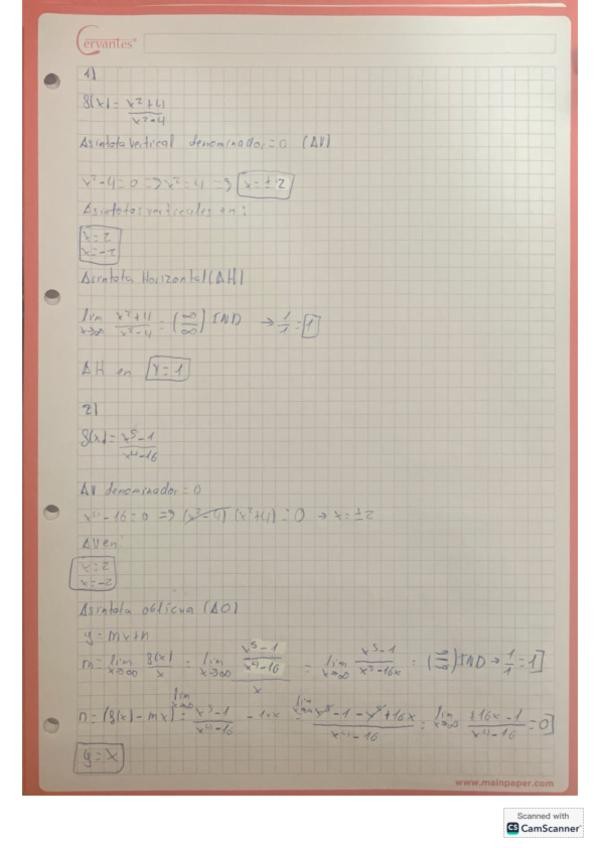 Cervantes®
1)
f(x) = x²+4 / x²-4
Asíntota vertical denominador = 0 (AV)
x²-4=0 => x²=4 => x=±2
Asíntotas verticales en:
x=2
x=-2
Asíntota Horizontal (AH)
lim x→∞ x²+4 / x²-4 = (∞/∞) IND → 1/1 = 1
AH en y=1
2)
f(x) = x⁵-1 / x⁴-16
AV denominador = 0
x⁴-16=0 => (x²-4) (x²+4) = 0 → x=±2
AV en:
x=2
x=-2
Asíntota oblicua (AO)
y = mx+n
m = lim x→∞ f(x)/x = lim x→∞ (x⁵-1 / x⁴-16) / x = lim x→∞ x⁵-1 / x⁵-16x = (∞/∞) IND → 1/1 = 1
n = (f(x) - mx) = lim x→∞ x⁵-1 / x⁴-16 - 1·x = lim x→∞ x⁵-1-x⁵+16x / x⁴-16 = lim x→∞ 16x-1 / x⁴-16 = 0
y = x
www.mainpaper.com
Scanned with
CS CamScanner